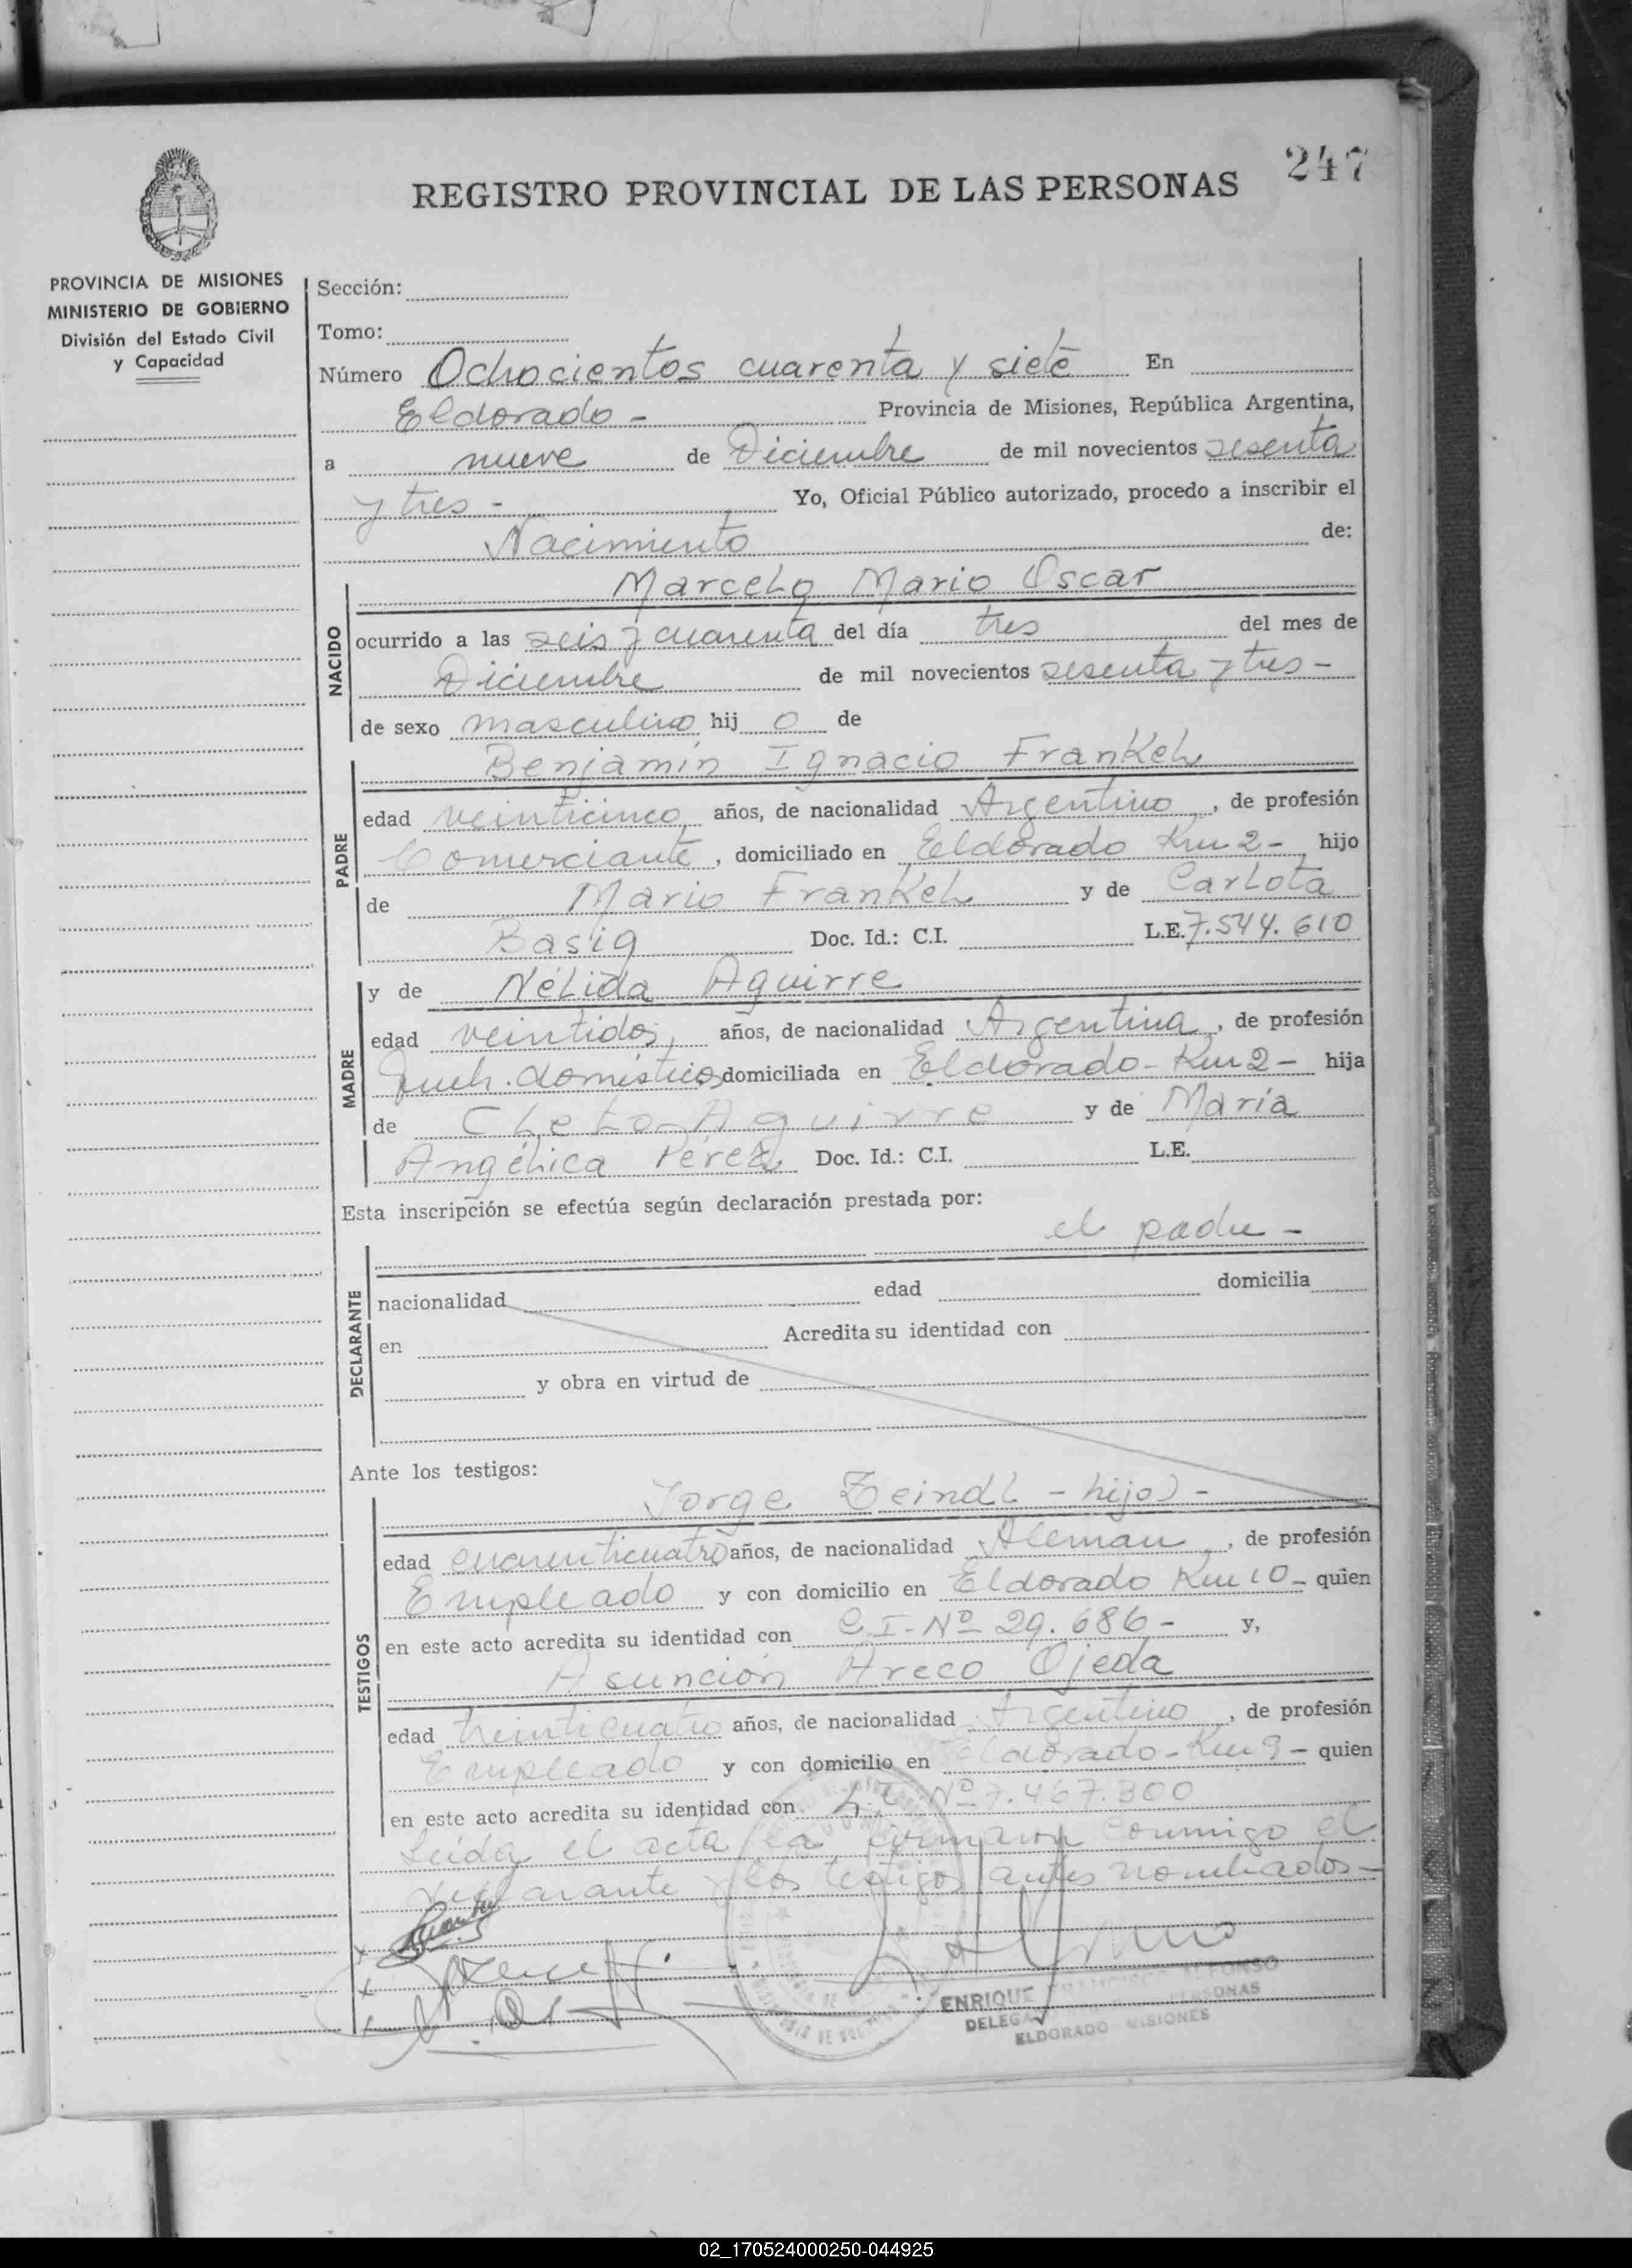 247
REGISTRO PROVINCIAL DE LAS PERSONAS
PROVINCIA DE MISIONES
MINISTERIO DE GOBIERNO
División del Estado Civil
y Capacidad
Sección:
Tomo:
Número Ochocientos cuarenta y siete En
Eldorado - Provincia de Misiones, República Argentina,
a nueve de Diciembre de mil novecientos sesenta
y tres - Yo, Oficial Público autorizado, procedo a inscribir el
Nacimiento de:
NACIDO
Marcelo Mario Oscar
ocurrido a las seis y cuarenta del día tres del mes de
Diciembre de mil novecientos sesenta y tres -
de sexo masculino hij o de
PADRE
Benjamín Ignacio Frankel
edad veinticinco años, de nacionalidad Argentino, de profesión
Comerciante, domiciliado en Eldorado Km 2 - hijo
de Mario Frankel y de Carlota
Basig Doc. Id.: C.I. L.E. 7.544.610
MADRE
y de Nélida Aguirre
edad veintidos, años, de nacionalidad Argentina, de profesión
domésticos domiciliada en Eldorado - Km 2 - hija
de Cleto Aguirre y de María
Angélica Pérez Doc. Id.: C.I. L.E.
Esta inscripción se efectúa según declaración prestada por:
el padre -
DECLARANTE
nacionalidad edad domicilia
en Acredita su identidad con
y obra en virtud de
Ante los testigos:
TESTIGOS
Jorge Zeindl - hijo) -
edad cuarenticuatro años, de nacionalidad Aleman, de profesión
Empleado y con domicilio en Eldorado Km 10 - quien
en este acto acredita su identidad con C.I. Nº 29.686 - y,
Asunción Areco Ojeda
edad treinticuatro años, de nacionalidad Argentino, de profesión
Empleado y con domicilio en Eldorado - Km 9 - quien
en este acto acredita su identidad con L.E. Nº 7.467.300
Leida el acta la firmaron conmigo el
declarante y los testigos antes nombrados -
ENRIQUE FRANCISCO ALFONSO
DELEG PERSONAS
ELDORADO - MISIONES
02_170524000250-044925